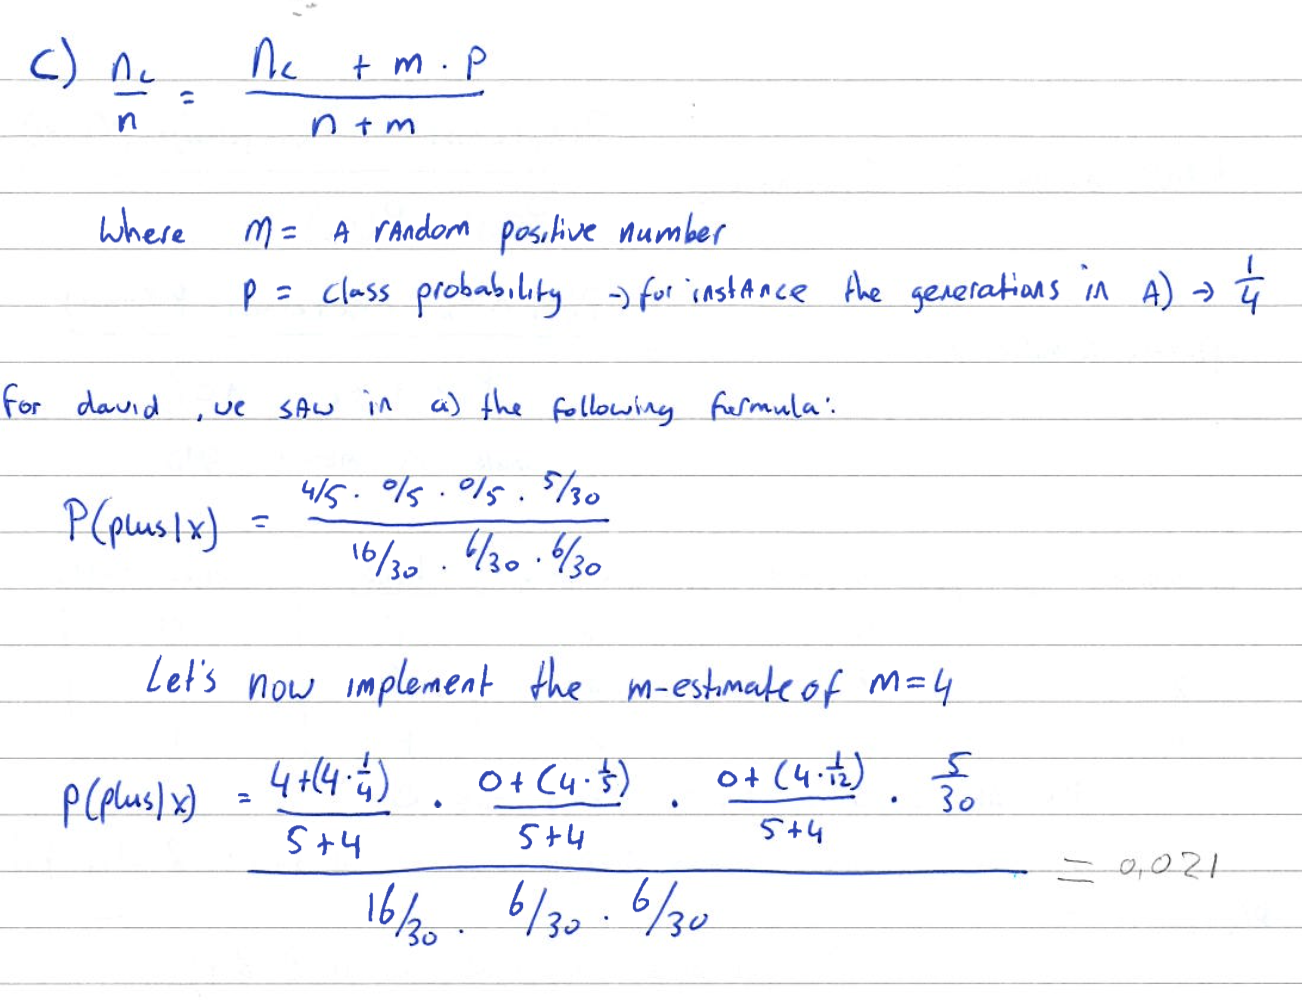 c) nc/n = (nc + m · p) / (n + m)
Where m = A rAndom positive number
p = class probability → for instAnce the generations in A) → 1/4
For david, we sAw in a) the following formula:
P(plus|x) = (4/5 · 0/5 · 0/5 · 5/30) / (16/30 · 6/30 · 6/30)
Let's now implement the m-estimate of m=4
P(plus|x) = ((4+(4·1/4))/(5+4) · (0+(4·1/5))/(5+4) · (0+(4·1/12))/(5+4) · 5/30) / (16/30 · 6/30 · 6/30) = 0,021